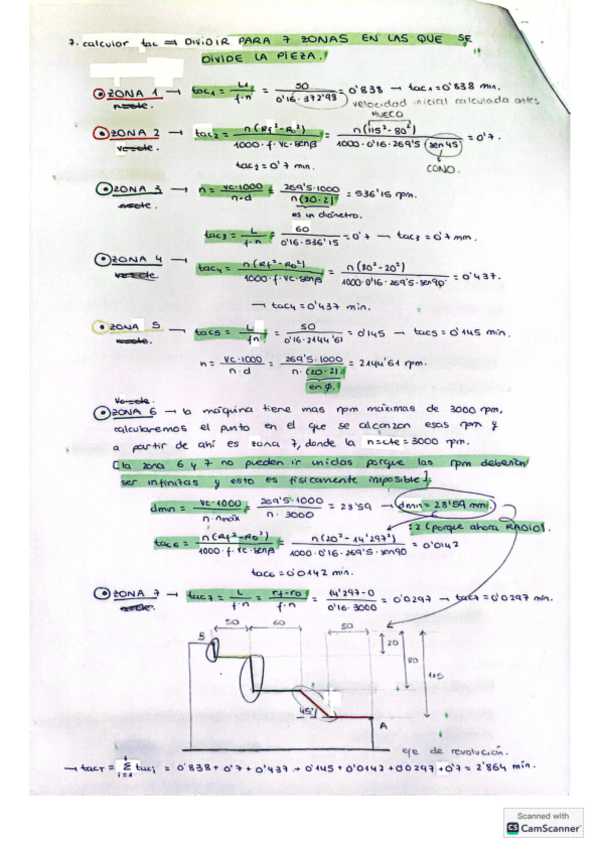 7. calcular tac ⇒ DIVIDIR PARA 7 ZONAS EN LAS QUE SE
DIVIDE LA PIEZA.
ZONA 1 → tac1 = L1 / f·n = 50 / 0'16·372'98 = 0'838 → tac1 = 0'838 min.
n=cte.
velocidad inicial calculada antes
HUECO
ZONA 2 → tac2 = π(Rf²-Ro²) / 1000·f·vc·senβ = π(115²-80²) / 1000·0'16·269'5 (sen45) = 0'7.
vc=cte
CONO.
tac2 = 0'7 min.
ZONA 3 → n = vc·1000 / π·d = 269'5·1000 / π(80·2) = 536'15 rpm.
n=cte.
es un diámetro.
tac3 = L / f·n = 60 / 0'16·536'15 = 0'7 → tac3 = 0'7 min.
ZONA 4 → tac4 = π(Rf²-Ro²) / 1000·f·vc·senβ = π(80²-20²) / 1000·0'16·269'5·sen90 = 0'437.
vc=cte.
→ tac4 = 0'437 min.
ZONA 5 → tac5 = L / f·n = 50 / 0'16·2144'61 = 0'145 → tac5 = 0'145 min.
n=cte.
n = vc·1000 / π·d = 269'5·1000 / π·(20·2) = 2144'61 rpm.
en Ø.
vc=cte
ZONA 6 → la máquina tiene mas rpm máximas de 3000 rpm,
calcularemos el punto en el que se alcanzan esas rpm y
a partir de ahí es zona 7, donde la n=cte=3000 rpm.
[la zona 6 y 7 no pueden ir unidas porque las rpm deberían
ser infinitas y esto es físicamente imposible].
dmn = vc·1000 / π·nmáx = 269'5·1000 / π·3000 = 28'59 → dmn = 28'59 mm.
:2 (porque ahora RADIO).
tac6 = π(Rf²-Ro²) / 1000·f·vc·senβ = π(20²-14'297²) / 1000·0'16·269'5·sen90 = 0'0142
tac6 = 0'0142 min.
ZONA 7 → tac7 = L / f·n = rf-ro / f·n = 14'297-0 / 0'16·3000 = 0'0297 → tac7 = 0'0297 min.
n=cte.
50 60 50
S
20
80
115
45°
A
eje de revolución.
→ tacT = Σ i=1 taci = 0'838 + 0'7 + 0'437 + 0'145 + 0'0142 + 0'0297 + 0'7 = 2'864 min.
Scanned with
CS CamScanner